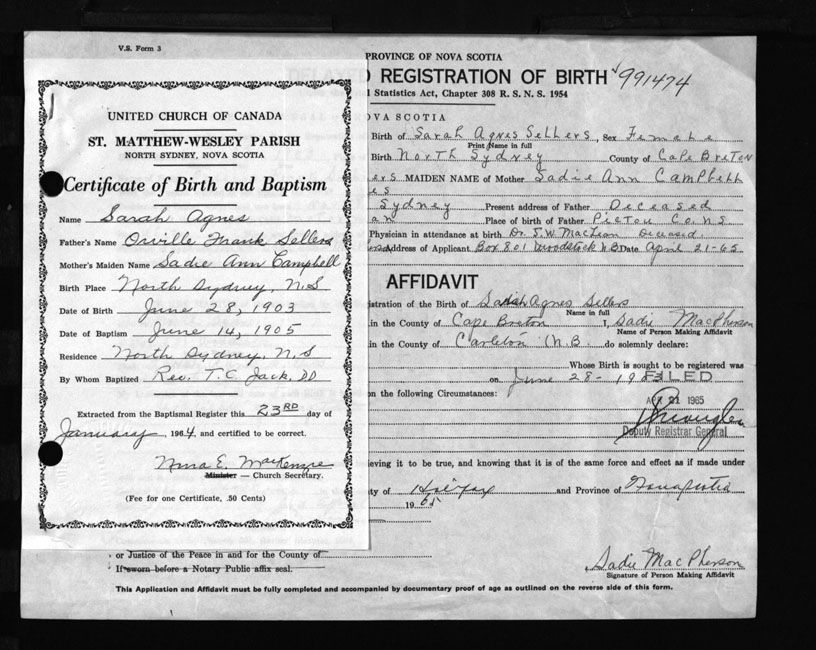 V.S. Form 3
UNITED CHURCH OF CANADA
ST. MATTHEW-WESLEY PARISH
NORTH SYDNEY, NOVA SCOTIA
Certificate of Birth and Baptism
Name Sarah Agnes
Father's Name Orville Frank Sellers
Mother's Maiden Name Sadie Ann Campbell
Birth Place North Sydney, N.S
Date of Birth June 28, 1903
Date of Baptism June 14, 1905
Residence North Sydney, N.S
By Whom Baptized Rev. T.C Jack, DD
Extracted from the Baptismal Register this 23RD day of
January, 1964 and certified to be correct.
Nina E. MacKenzie
Minister — Church Secretary.
(Fee for one Certificate, .50 Cents)
PROVINCE OF NOVA SCOTIA
REGISTRATION OF BIRTH 991474
Statistics Act, Chapter 308 R. S. N. S. 1954
OVA SCOTIA
Birth of Sarah Agnes Sellers, Sex Female
Print Name in full
Birth North Sydney County of Cape Breton
ers MAIDEN NAME of Mother Sadie Ann Campbell
es
Sydney Present address of Father Deceased
an Place of birth of Father Pictou Co. NS
Physician in attendance at birth Dr. J.W. MacLean Deceased.
Address of Applicant Box 801 Woodstock N.B. Date April 21-65
AFFIDAVIT
istration of the Birth of Sarah Agnes Sellers
Name in full
in the County of Cape Breton I, Sadie MacPherson
Name of Person Making Affidavit
in the County of Carleton (N.B. do solemnly declare:
Whose Birth is sought to be registered was
on June 28- 1903 FILED
on the following Circumstances:
APR 21 1965
Deputy Registrar General
ieving it to be true, and knowing that it is of the same force and effect as if made under
ty of Halifax and Province of Nova Scotia
1965
or Justice of the Peace in and for the County of
If sworn before a Notary Public affix seal.
Sadie MacPherson
Signature of Person Making Affidavit
This Application and Affidavit must be fully completed and accompanied by documentary proof of age as outlined on the reverse side of this form.